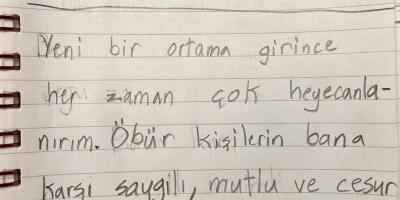 Yeni bir ortama girince
her zaman çok heyecanla-
nırım. Öbür kişilerin bana
karşı saygılı, mutlu ve cesur